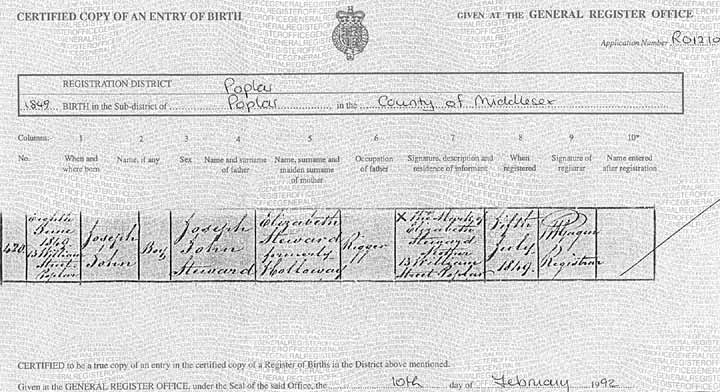 CERTIFIED COPY OF AN ENTRY OF BIRTH
GIVEN AT THE GENERAL REGISTER OFFICE
Application Number R01210
REGISTRATION DISTRICT Poplar
1849 BIRTH in the Sub-district of Poplar in the County of Middlesex
Columns: 1 2 3 4 5 6 7 8 9 10*
No. When and where born Name, if any Sex Name and surname of father Name, surname and maiden surname of mother Occupation of father Signature, description and residence of informant When registered Signature of registrar Name entered after registration
420 Eighth June 1849 13 William Street Poplar
Joseph John
Boy
Joseph John Steward
Elizabeth Steward formerly Holloway
Rigger
X The Mark of Elizabeth Steward Mother 13 William Street Poplar
Fifth July 1849
Registrar
CERTIFIED to be a true copy of an entry in the certified copy of a Register of Births in the District above mentioned.
Given at the GENERAL REGISTER OFFICE, under the Seal of the said Office, the 10th day of February 1992